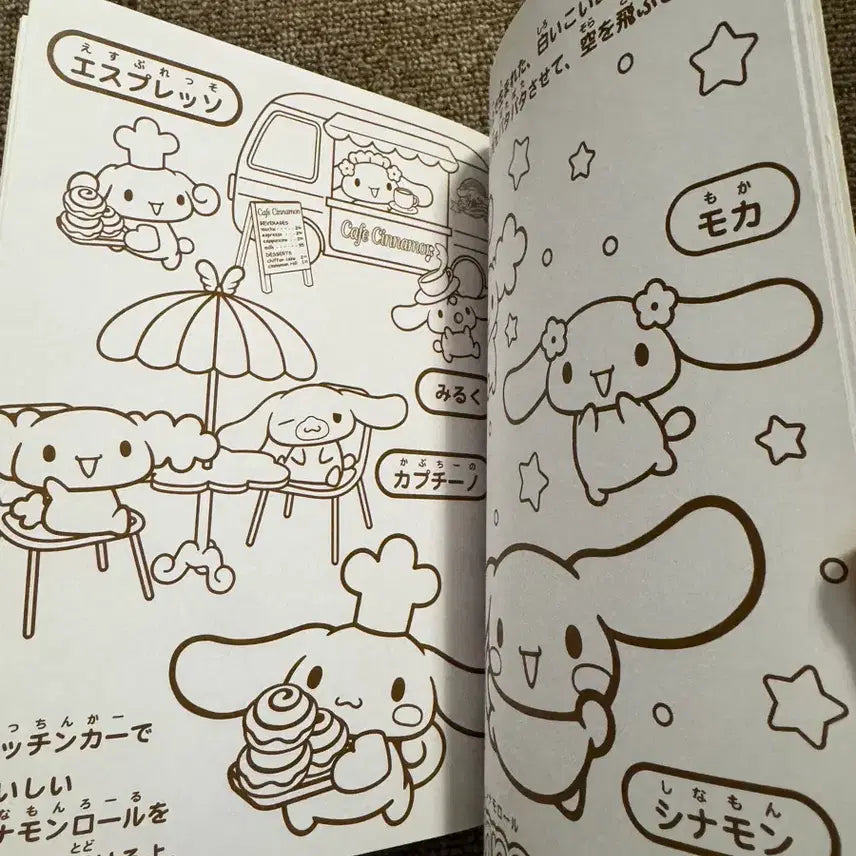 えすぷれっそ
エスプレッソ
Cafe Cinnamon
BEVERAGES
mocha
espresso
cappuccino
milk
DESSERTS
chiffon cake
cinnamon roll
Cafe Cinnamon
みるく
かぷちーの
カプチーノ
っちんかー
ッチンカーで
いしい
なもんろーる
ナモンロールを
とど
るよ
まれた、白いこい
しろ
パタパタさせて、空を飛ぶ
そら
と
もか
モカ
しなもん
シナモン
ナモロール